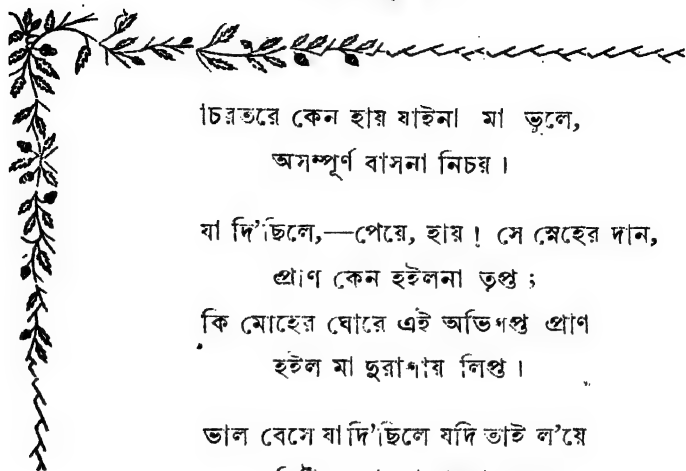 চিরতরে কেন হায় যাইনা মা ভুলে,
অসম্পূর্ণ বাসনা নিচয়।
যা দি'ছিলে,—পেয়ে, হায়! সে স্নেহের দান,
প্রাণ কেন হইলনা তৃপ্ত;
কি মোহের ঘোরে এই অভিশপ্ত প্রাণ
হইল মা দুরাশায় লিপ্ত।
ভাল বেসে যা দি'ছিলে যদি তাই ল'য়ে